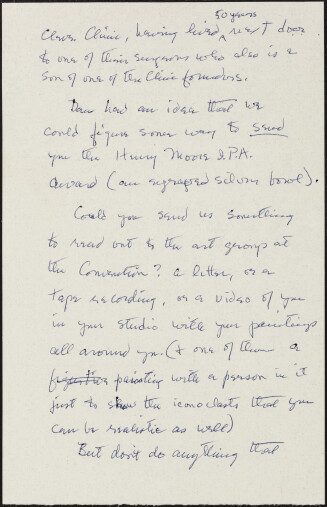 50 years
Cleve Clinic, having lived ^ next door
to one of their surgeons who also is a
son of one of the Clinic founders.
had an idea that we
could figure some way to send
you the Henry Moore I.P.A.
award (an engraved silver bowl).
Could you send us something
to read out to the art groups at
the Convention? a letter, or a
tape recording, or a video of you
in your studio with your paintings
all around you. (+ one of them a
figurative painting with a person in it
just to show the iconoclasts that you
can be realistic as well)
But don't do anything that